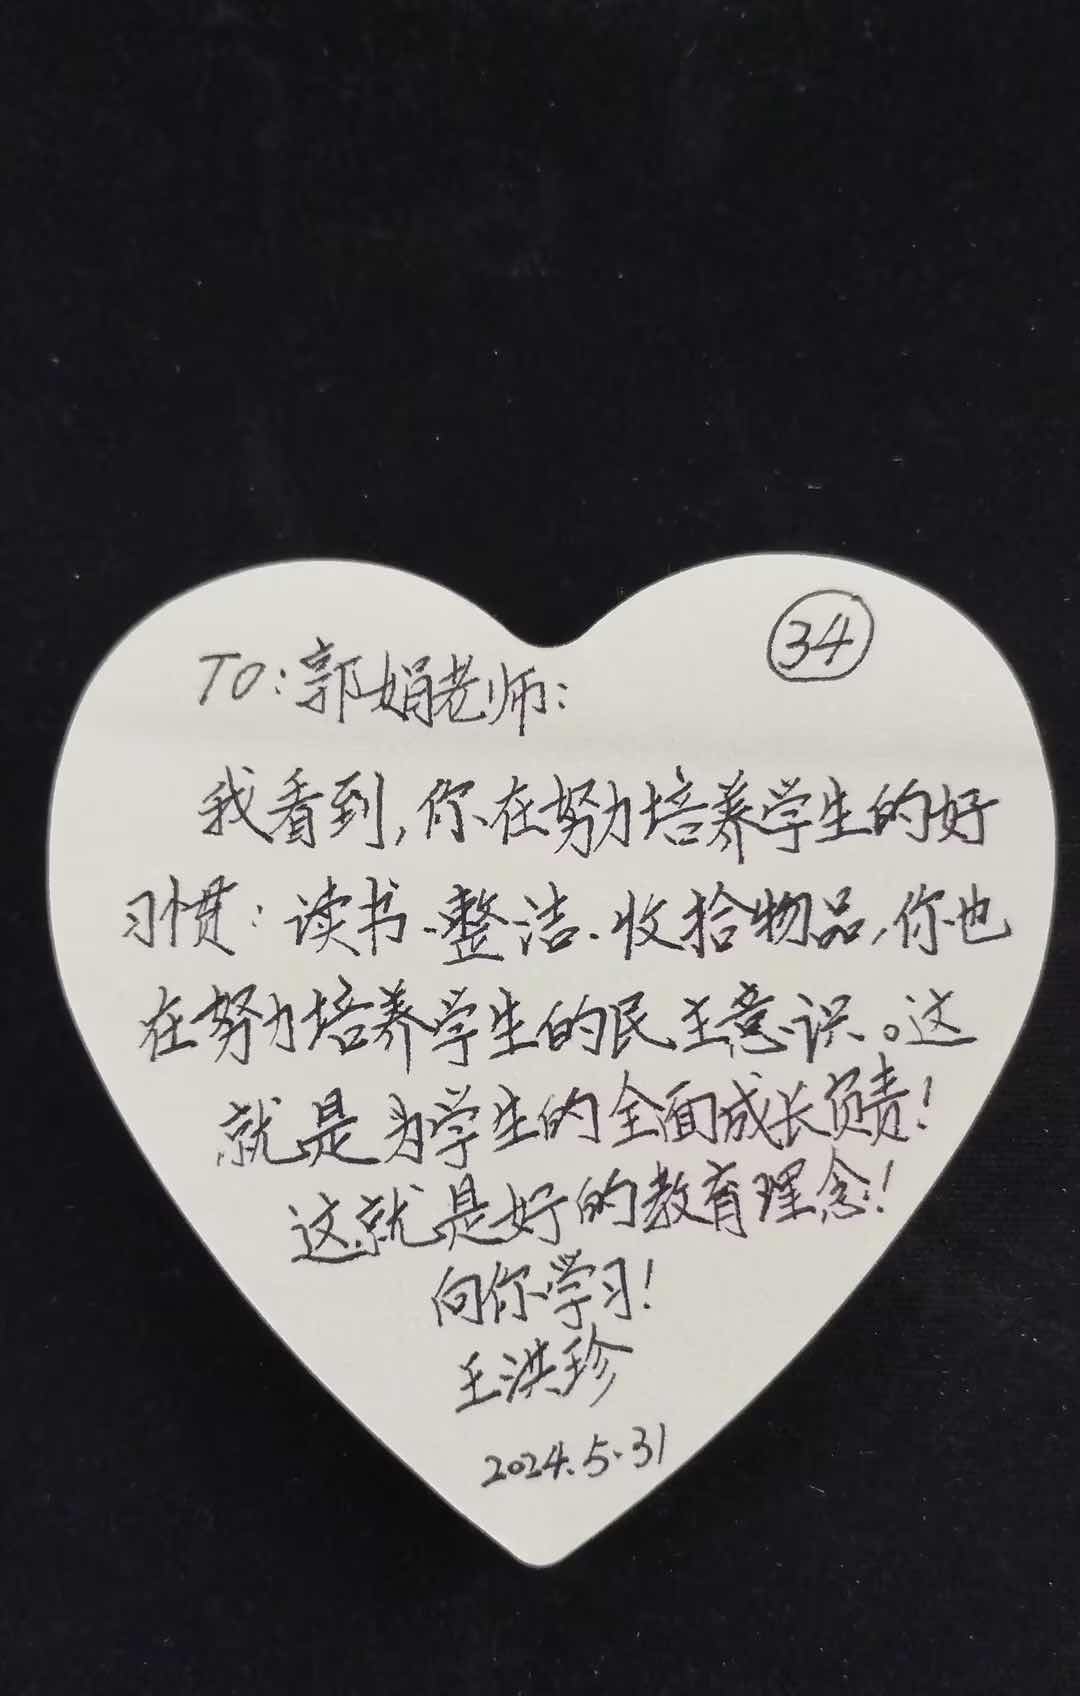 34
TO:郭娟老师:
我看到,你在努力培养学生的好
习惯:读书、整洁、收拾物品,你也
在努力培养学生的民主意识。这
就是为学生的全面成长负责!
这就是好的教育理念!
向你学习!
王洪珍
2024.5.31